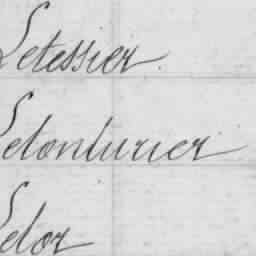 Letessier
Letonturier
Lelor